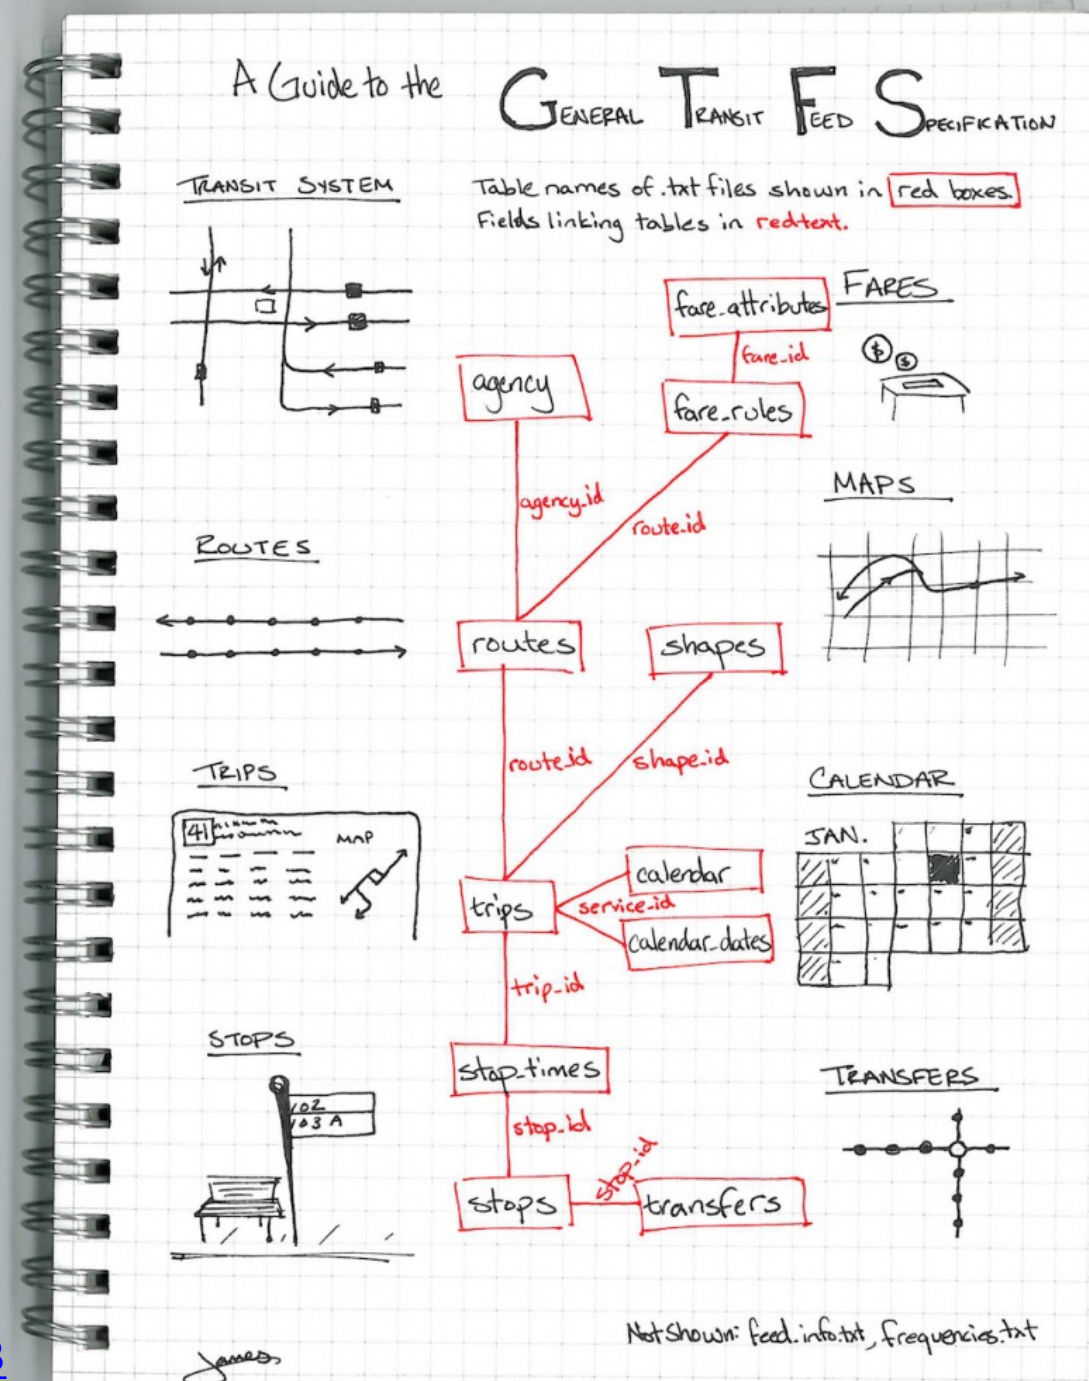 A Guide to the GENERAL TRANSIT FEED SPECIFICATION
TRANSIT SYSTEM
Table names of .txt files shown in red boxes.
Fields linking tables in red text.
fare_attributes
FARES
fare_id
$ $
agency
fare_rules
agency_id
route_id
MAPS
ROUTES
routes
shapes
route_id
shape_id
TRIPS
41
MAP
CALENDAR
JAN.
trips
calendar
service_id
calendar_dates
trip_id
STOPS
102
103 A
stop_times
TRANSFERS
stop_id
stop_id
stops
transfers
Not Shown: feed_info.txt, frequencies.txt
James